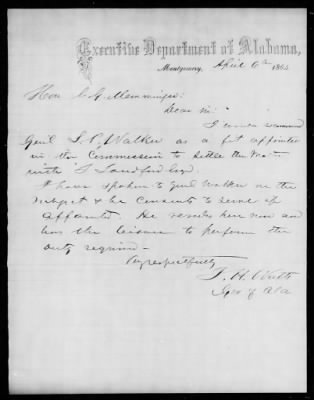 Executive Department of Alabama,
Montgomery, April 6th 1864
Hon. C. G. Memminger
Dear Sir
I would recommend
Genl L. P. Walker as a fit appointee
in the Commission to settle the
with
I have spoken to Genl Walker on the
subject & he consents to serve if
appointed. He resides here now and
has the leisure to perform the
duty required—
Very respectfully
T. H. Watts
Gov of Ala